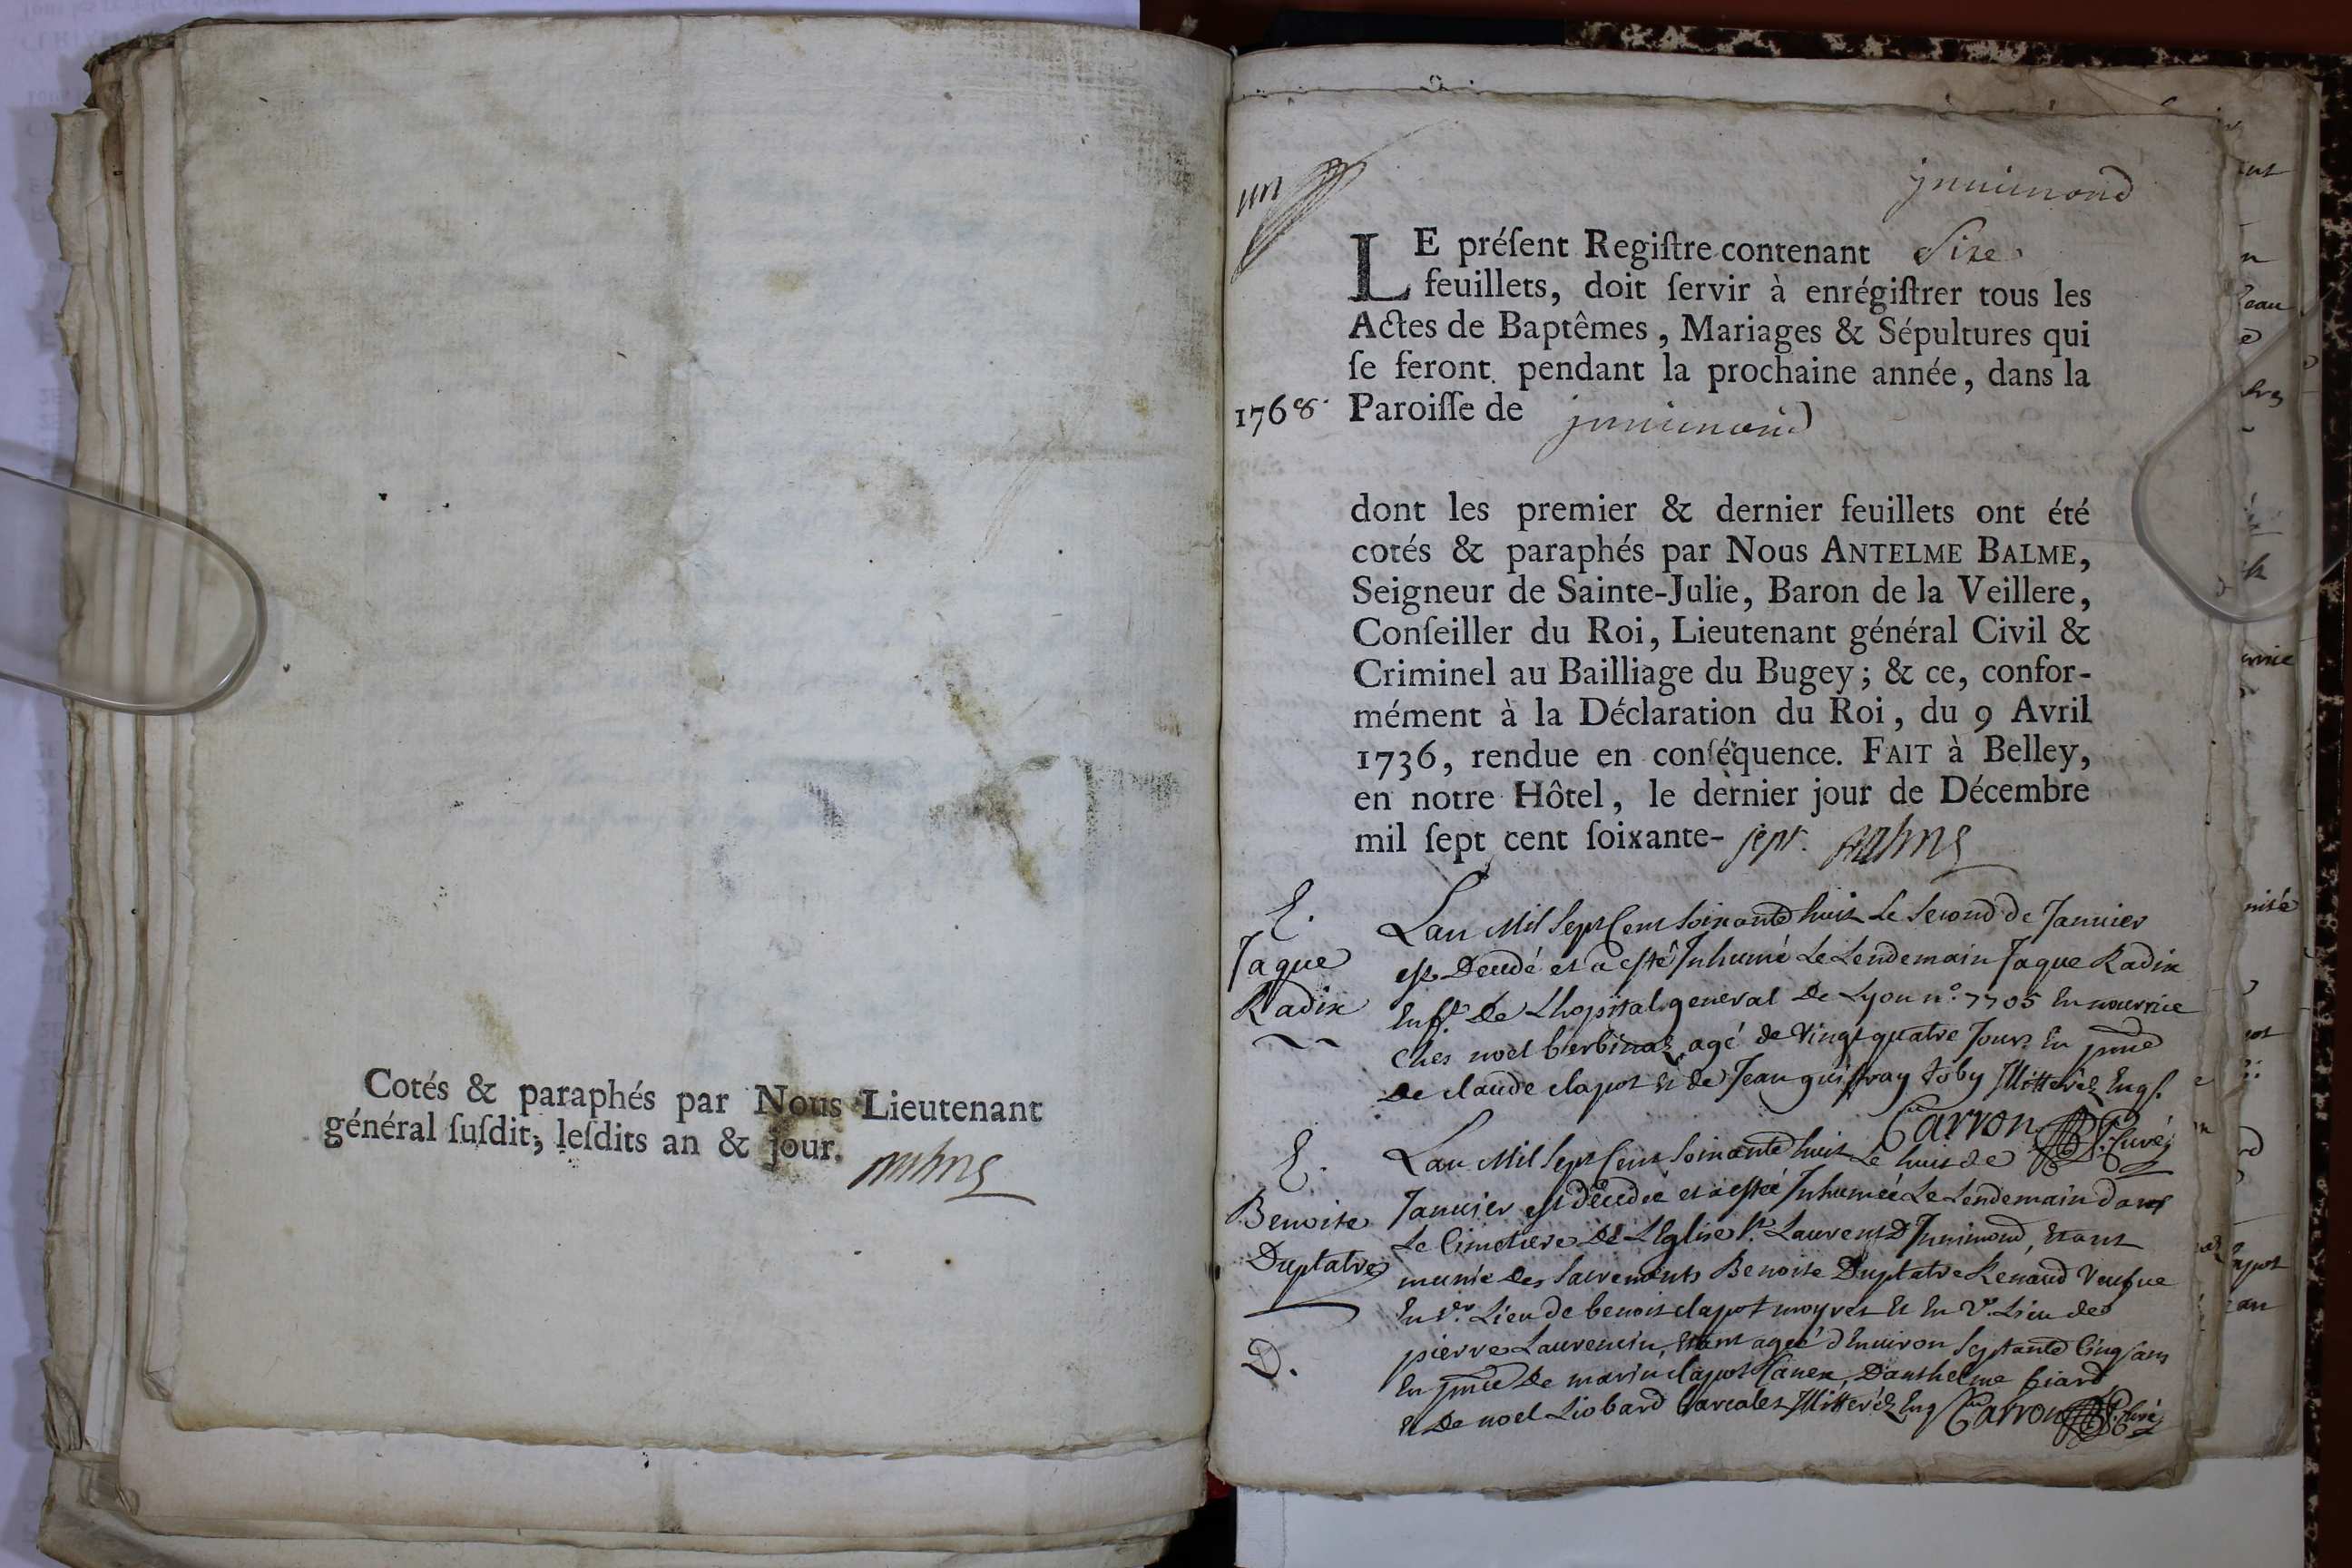 Cotés & paraphés par Nous Lieutenant
général ſuſdit, leſdits an & jour.
un
jnnimond
LE préſent Regiſtre contenant Size
feuillets, doit ſervir à enrégiſtrer tous les
Actes de Baptêmes, Mariages & Sépultures qui
ſe feront pendant la prochaine année, dans la
1768. Paroiſſe de jnnimond
dont les premier & dernier feuillets ont été
cotés & paraphés par Nous ANTELME BALME,
Seigneur de Sainte-Julie, Baron de la Veillere,
Conſeiller du Roi, Lieutenant général Civil &
Criminel au Bailliage du Bugey; & ce, confor-
mément à la Déclaration du Roi, du 9 Avril
1736, rendue en conſéquence. FAIT à Belley,
en notre Hôtel, le dernier jour de Décembre
mil ſept cent ſoixante- sept.
E.
Jaque
Radix
Lan Mil Sept Cent Soixante huit Le Second de Janvier
est Decedé et a esté Inhumé Le Lendemain Jaque Radix
Enft. De Lhopital general de Lyon n.º 7705 En nourrice
Ches noel berbinal, agé de Vingt quatre Jours En pnce
De claude clapot Et de Jean guiffray toby Illitterés Enqs.
Carron Curé
E.
Benoite
Duplatre
D.
Lan Mil Sept Cent Soixante huit Le huit de
Janvier est decedee et a estée Inhumée Le Lendemain dans
Le Cimetiere De LEglise St. Laurent D Innimond, Etant
munie des Sacrements Benoite Duplatre Renaud Veufve
En 1er. Lieu de benoit clapot moyret Et En 2e. Lieu de
pierre Laurencin, Etant ageé dEnviron Septante Cinq ans
En pnce De marin clapot Canex, Danthelme biard
Et De noel Liobard Illitterés Enq Carron Curé